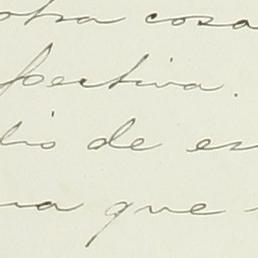 otra cosa
pectiva.
dio de es
na que